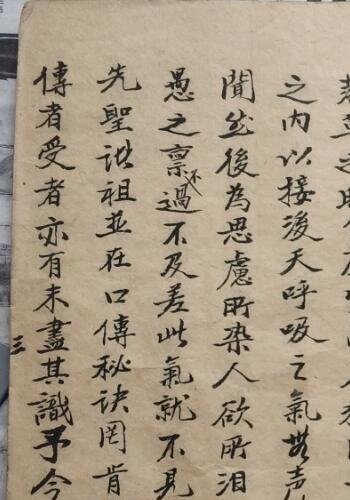 之内以接後天呼吸之氣無声
聞然後為思慮所染人欲所汨
愚之禀不過不及差此氣就不見
先聖諸祖並在口傳秘訣罔肯
傳者受者亦有未盡其識予今
三